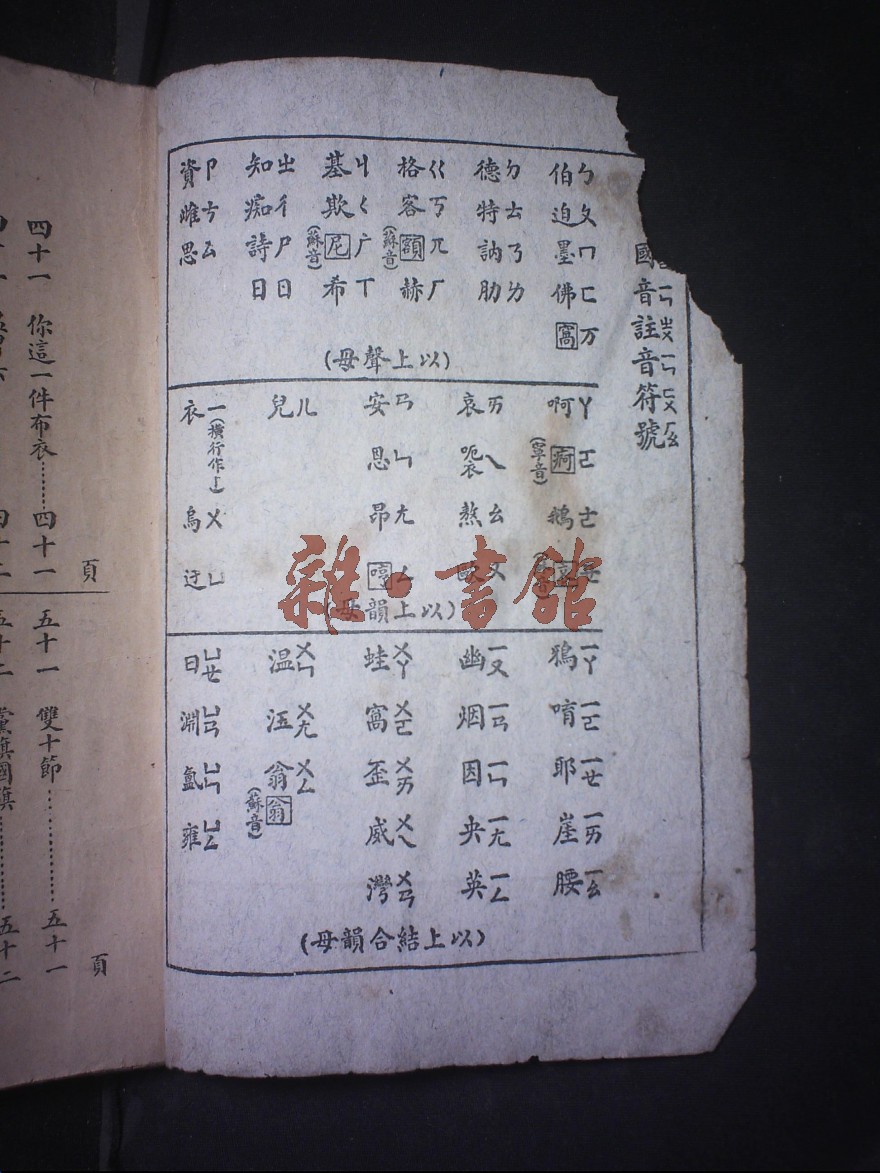 國音註音符號
ㄅ伯 ㄆ迫 ㄇ墨 ㄈ佛 万窩
ㄉ德 ㄊ特 ㄋ訥 ㄌ肋
ㄍ格 ㄎ客 兀額(蘇音) ㄏ赫
ㄐ基 ㄑ欺 广尼(蘇音) ㄒ希
ㄓ知 ㄔ痴 ㄕ詩 ㄖ日
ㄗ資 ㄘ雌 ㄙ思
(以上聲母)
ㄚ啊 ㄛ痾 ㄜ鵝
ㄞ哀 ㄟ ㄠ熬 ㄡ歐
ㄢ安 ㄣ恩 ㄤ昂 ㄥ
ㄦ兒
一(橫行作丨)衣 ㄨ烏 ㄩ迂
(以上韻母)
ㄧㄚ鴉 ㄧㄛ唷 ㄧㄝ耶 ㄧㄞ崖 ㄧㄠ腰
ㄧㄡ幽 ㄧㄢ烟 ㄧㄣ因 ㄧㄤ央 ㄧㄥ英
ㄨㄚ蛙 ㄨㄛ窩 ㄨㄞ歪 ㄨㄟ威 ㄨㄢ灣
ㄨㄣ温 ㄨㄤ汪 ㄨㄥ翁 翁(蘇音)
ㄩㄝ曰 ㄩㄢ淵 ㄩㄣ氳 ㄩㄥ雍
(以上結合韻母)
雜·書館
頁
四十一 你這一件布衣……四十一
頁
五十一 雙十節……五十一
五十二 黨旗國旗……五十二